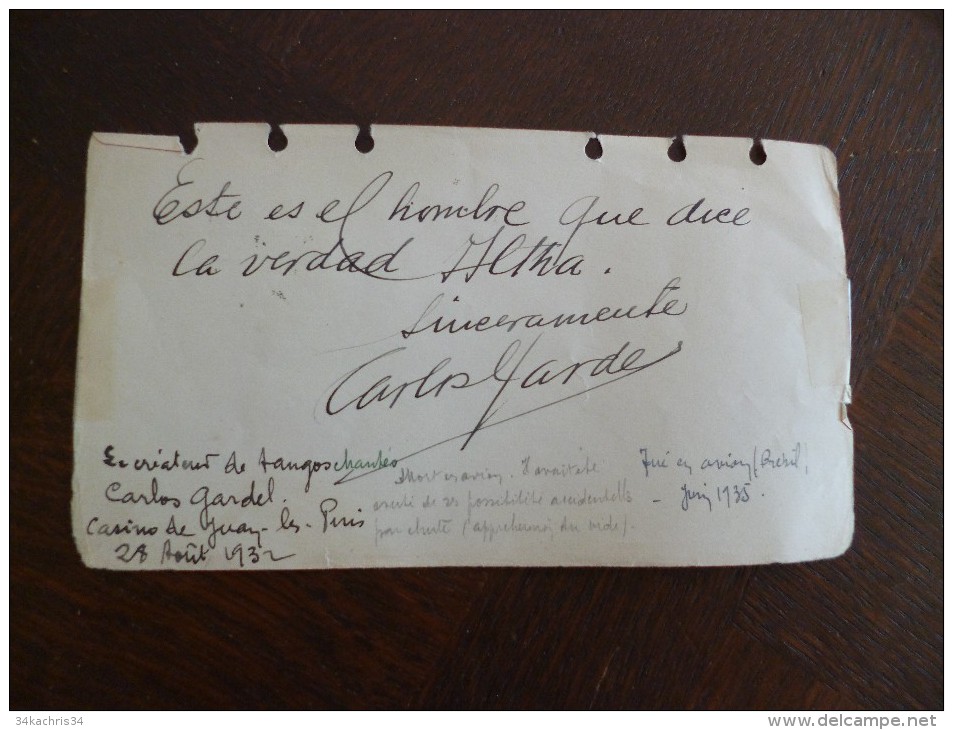 Este es el hombre que dice
la verdad Iltha.
Sinceramente
Carlos Gardel
Le créateur de tangos chantés
Carlos Gardel.
Casino de Juan-les-Pins
28 Août 1932
Mort en avion. Il avait été
averti de ses possibilité accidentelle
par chute (appréhension du vide).
Tué en avion (Brésil,
- Juin 1935.
34kachris34
www.delcampe.net